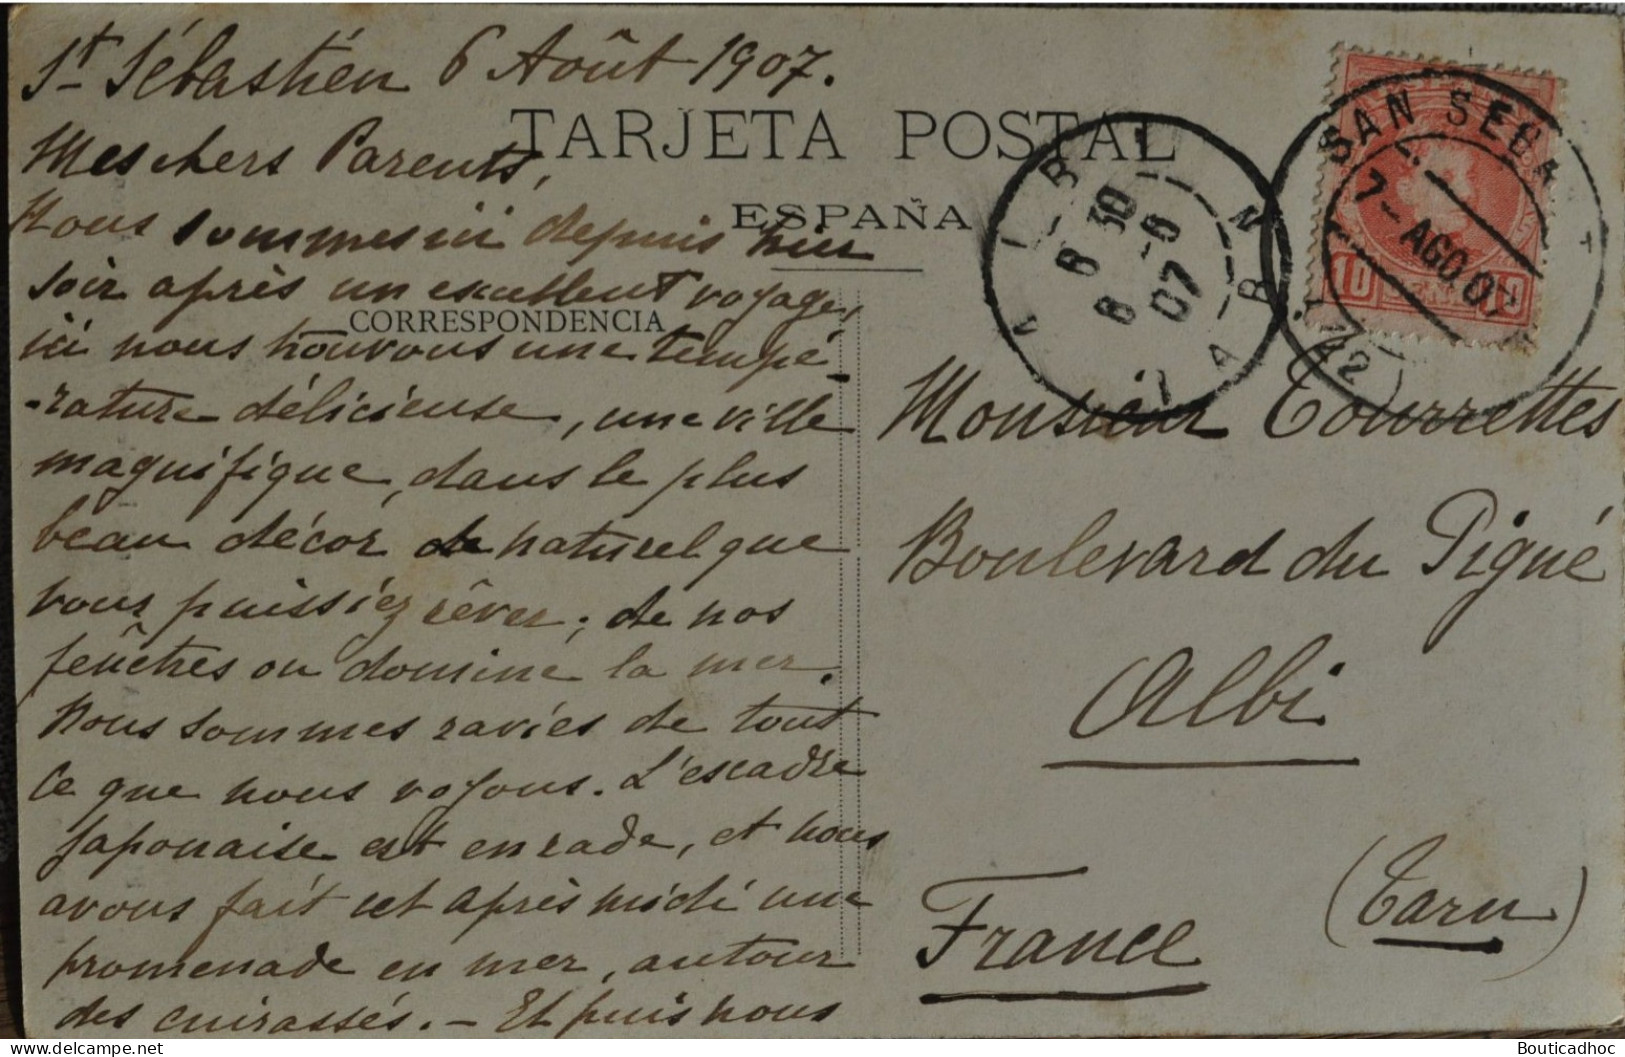 St Sébastien 6 Août 1907.
TARJETA POSTAL
ESPAÑA
CORRESPONDENCIA
Mes chers Parents,
Nous sommes ici depuis hier
soir après un excellent voyage,
ici nous trouvons une tempé-
-rature délicieuse, une ville
magnifique, dans le plus
beau décor de naturel que
vous puissiez rêver; de nos
fenêtres on domine la mer.
Nous sommes ravies de tout
ce que nous voyons. L'escadre
japonaise est en rade, et nous
avons fait cet après midi une
promenade en mer, autour
des cuirassés. — Et puis nous
ALBI
8 30
8 - 8
07
TARN
SAN SEBAST
7 - AGO.07
(12)
10 10
Monsieur Tourrettes
Boulevard du Pigné
Albi
(Tarn)
France
delcampe.net
Bouticadhoc